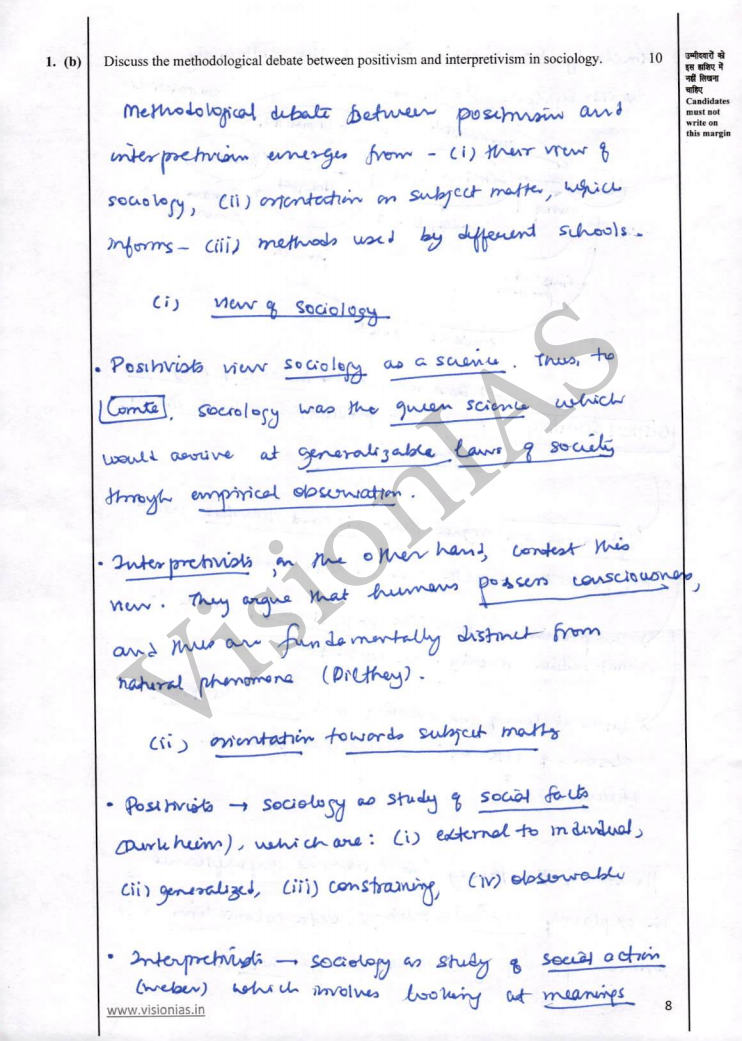 1. (b) Discuss the methodological debate between positivism and interpretivism in sociology. 10
उम्मीदवारों को
इस हाशिए में
नहीं लिखना
चाहिए
Candidates
must not
write on
this margin
Methodological debate between positivism and
interpretivism emerges from - (i) their view of
sociology, (ii) orientation on subject matter, which
informs - (iii) methods used by different schools.
(i) view of sociology
• Positivists view sociology as a science. Thus, to
Comte, sociology was the queen science which
would arrive at generalizable laws of society
through empirical observation.
• Interpretivists, on the other hand, contest this
view. They argue that humans possess consciousness,
and thus are fundamentally distinct from
natural phenomena (Dilthey).
(ii) orientation towards subject matter
• Positivists → sociology as study of social facts
(Durkheim), which are: (i) external to individual,
(ii) generalized, (iii) constraining, (iv) observable
• Interpretivists → sociology as study of social action
(Weber) which involves looking at meanings
www.visionias.in
8
VisionIAS